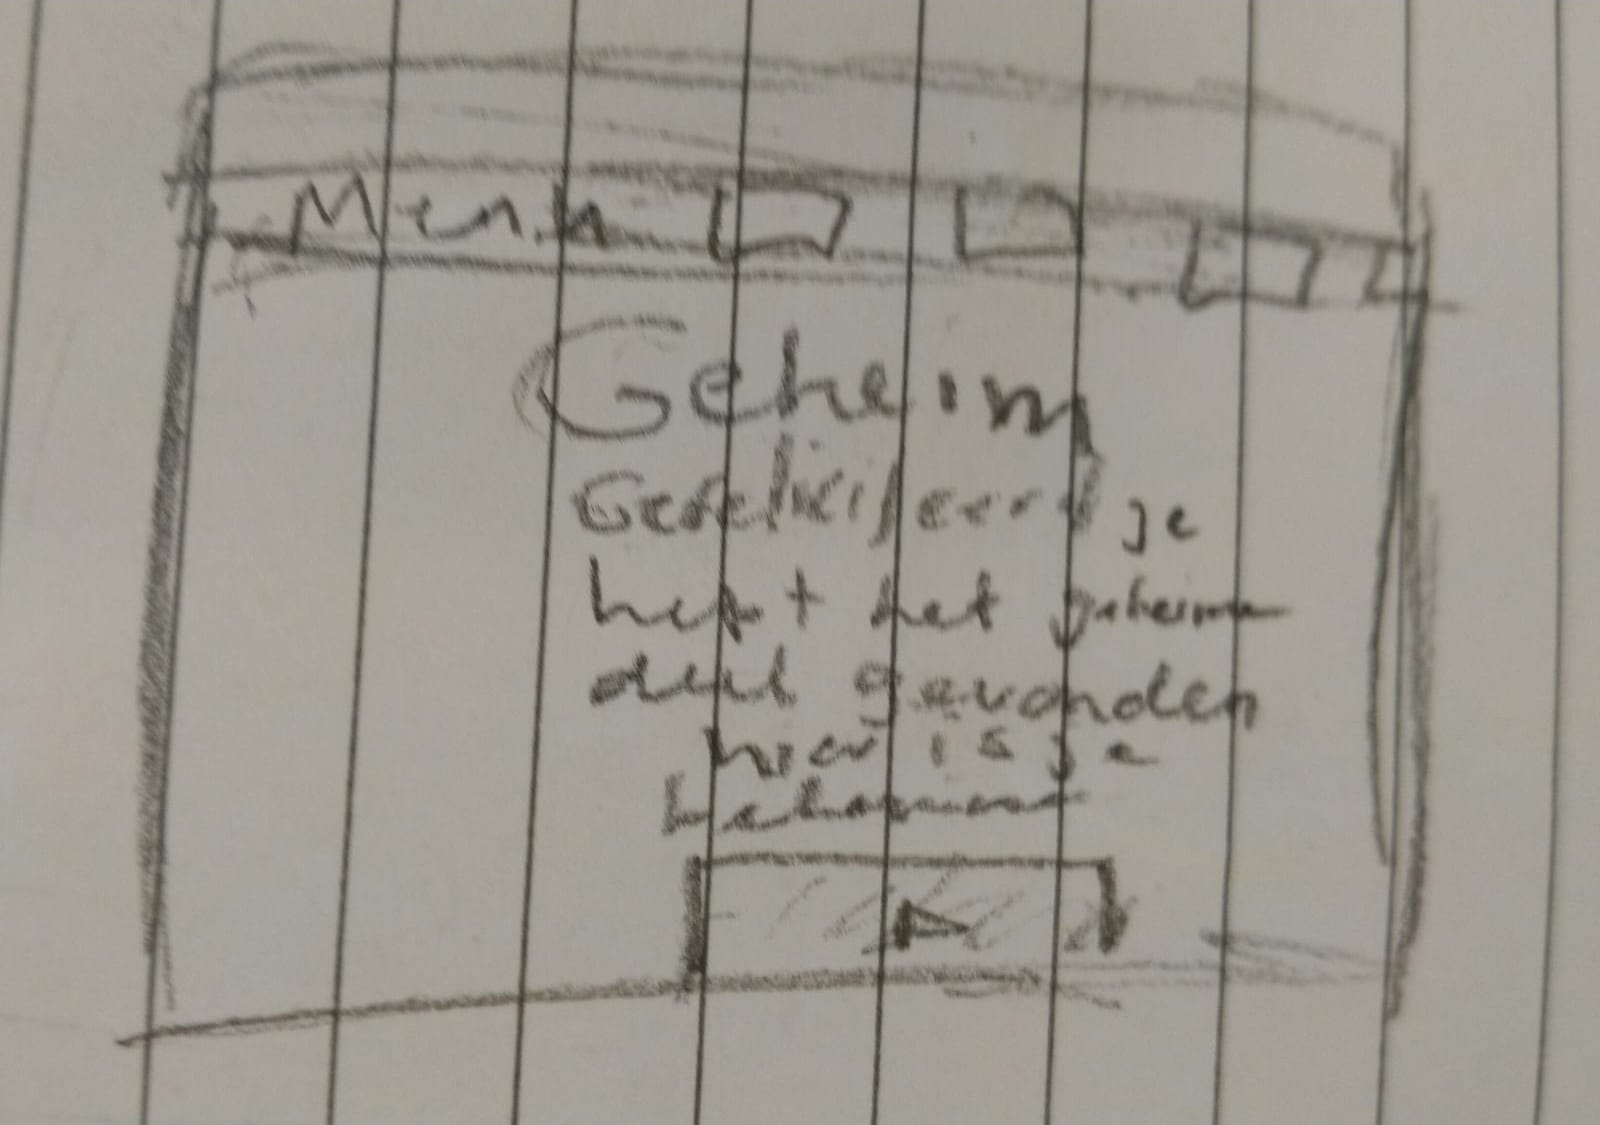 Menu
Geheim
Gefeliciteerd je
hept het geheime
deel gevonden
hier is je